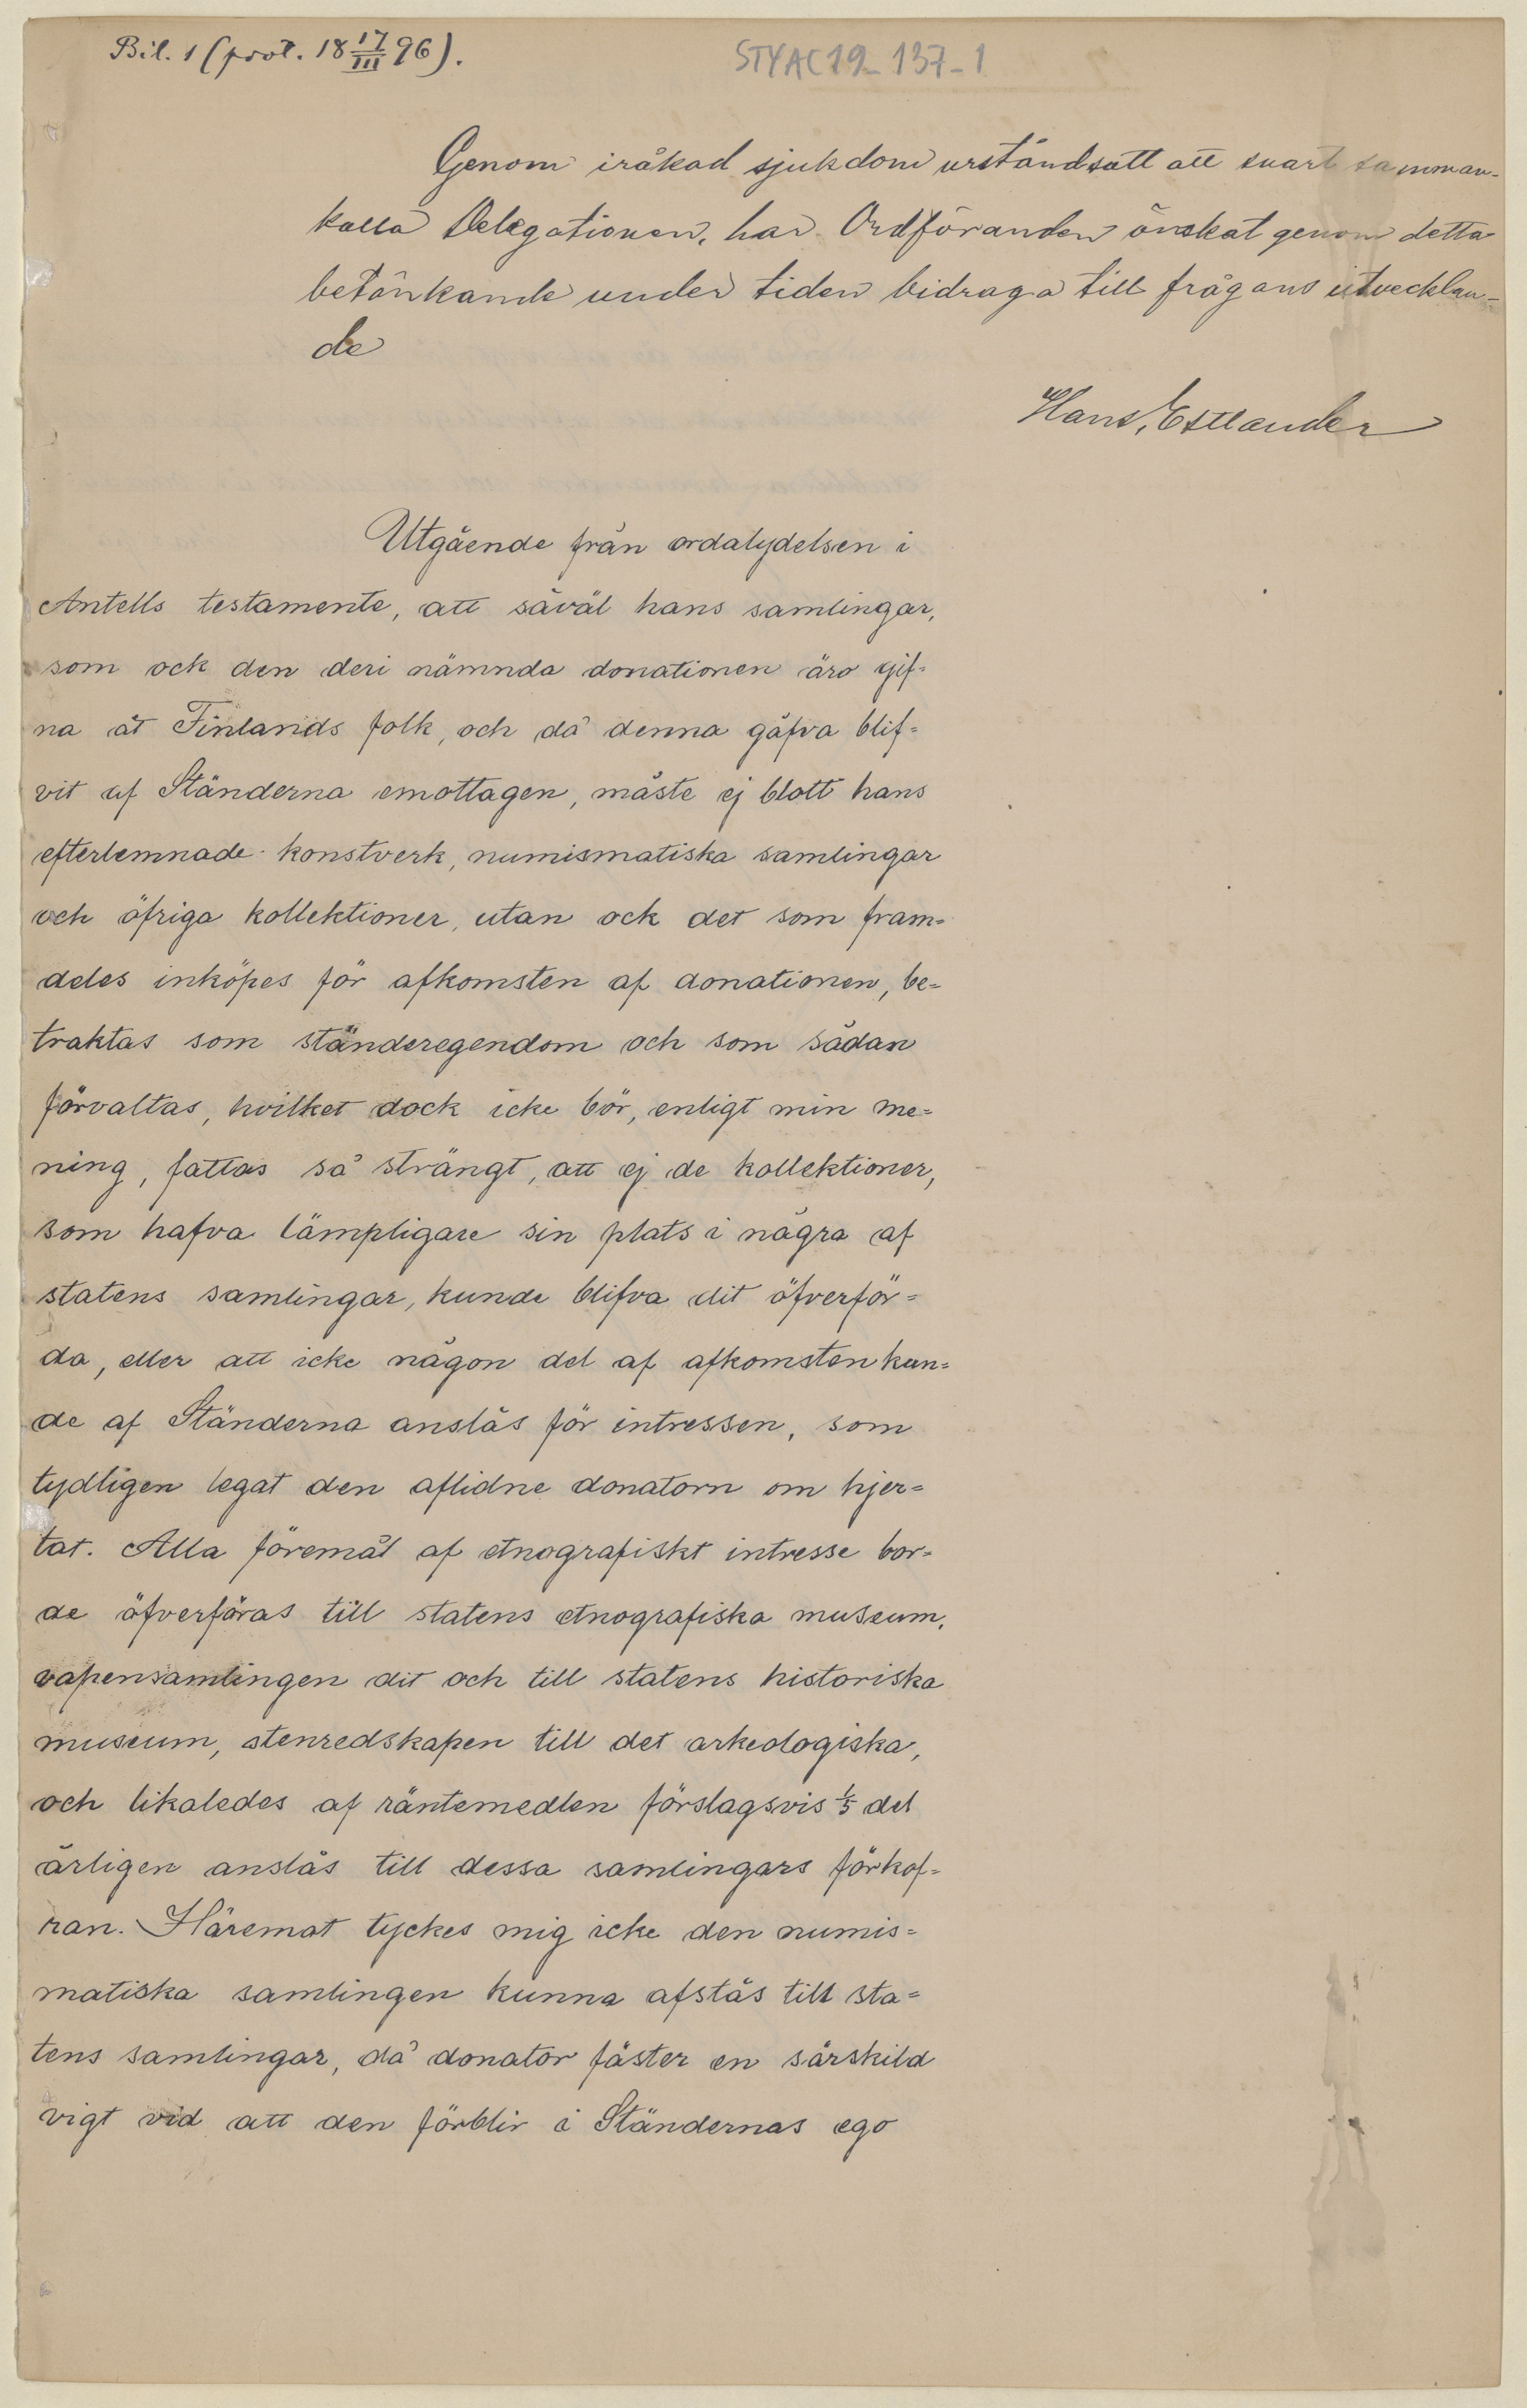 Bil. 1 (prot. 18 17/III 96).
STYAC19-137-1
Genom iråkad sjukdom urståndsatt att snart samman-
kalla Delegationen, har Ordföranden önskat genom detta
betänkande under tiden bidraga till frågans utvecklan-
de
Hans Estlander
Utgående från ordalydelsen i
Antells testamente, att såväl hans samlingar,
som ock den deri nämnda donationen äro gif=
na åt Finlands folk, och då denna gåfva blif=
vit af Ständerna emottagen, måste ej blott hans
efterlemnade konstverk, numismatiska samlingar
och öfriga kollektioner, utan ock det som fram=
deles inköpes för afkomsten af donationen, be=
traktas som ständeregendom och som sådan
förvaltas, hvilket dock icke bör, enligt min me=
ning, fattas så strängt, att ej de kollektioner,
som hafva lämpligare sin plats i några af
statens samlingar, kunde blifva dit öfverför=
da, eller att icke någon del af afkomsten kun=
de af Ständerna anslås för intressen, som
tydligen legat den aflidne donatorn om hjer=
tat. Alla föremål af etnografiskt intresse bor=
de öfverföras till statens etnografiska museum,
vapensamlingen dit och till statens historiska
museum, stenredskapen till det arkeologiska,
och likaledes af räntemedlen förslagsvis 1/5 del
årligen anslås till dessa samlingars förkof=
ran. Häremot tyckes mig icke den numis=
matiska samlingen kunna afstås till sta=
tens samlingar, då donator fäster en särskild
vigt vid att den förblir i Ständernas ego